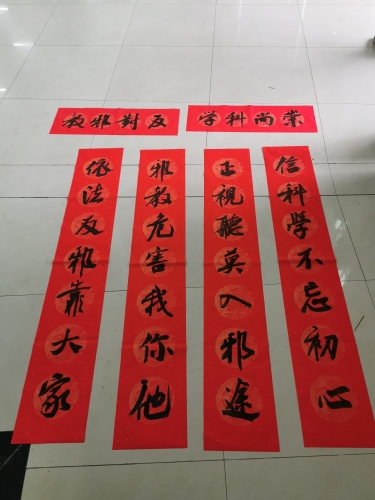 崇尚科学
反對邪教
信科學不忘初心
正視聽莫入邪途
邪教危害我你他
依法反邪靠大家